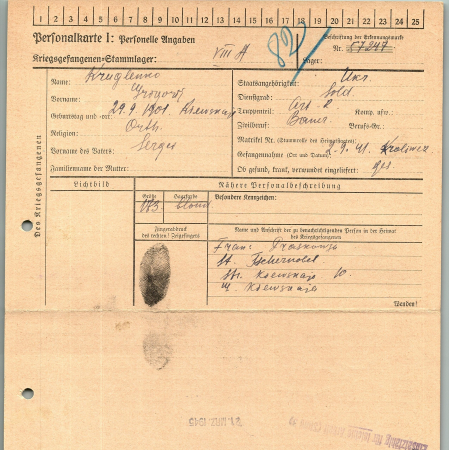 1 2 3 4 5 6 7 8 9 10 11 12 13 14 15 16 17 18 19 20 21 22 23 24 25
Personalkarte I: Personelle Angaben
Beschriftung der Erkennungsmarke
Kriegsgefangenen-Stammlager: VIII A
82
Nr. 57247
Lager:
Des Kriegsgefangenen
Name: Kruglenko
Vorname:
Geburtstag und -ort: 29.9.1901
Religion: Orth.
Vorname des Vaters: Sergej
Familienname der Mutter:
Staatsangehörigkeit: Ukr.
Dienstgrad: Sold.
Truppenteil: Komp. usw.:
Zivilberuf: Bauer Berufs-Gr.:
Matrikel Nr. (Stammrolle des Heimatlagers):
Gefangennahme (Ort und Datum): 9. 41.
Ob gesund, krank, verwundet eingeliefert: ges
Lichtbild
Nähere Personalbeschreibung
Größe
Haarfarbe
Besondere Kennzeichen:
blond
Fingerabdruck
des rechten! Zeigefingers
Name und Anschrift der zu benachrichtigenden Person in der Heimat
des Kriegsgefangenen
St. Tschernobel
Wenden!
1. MRZ. 1945